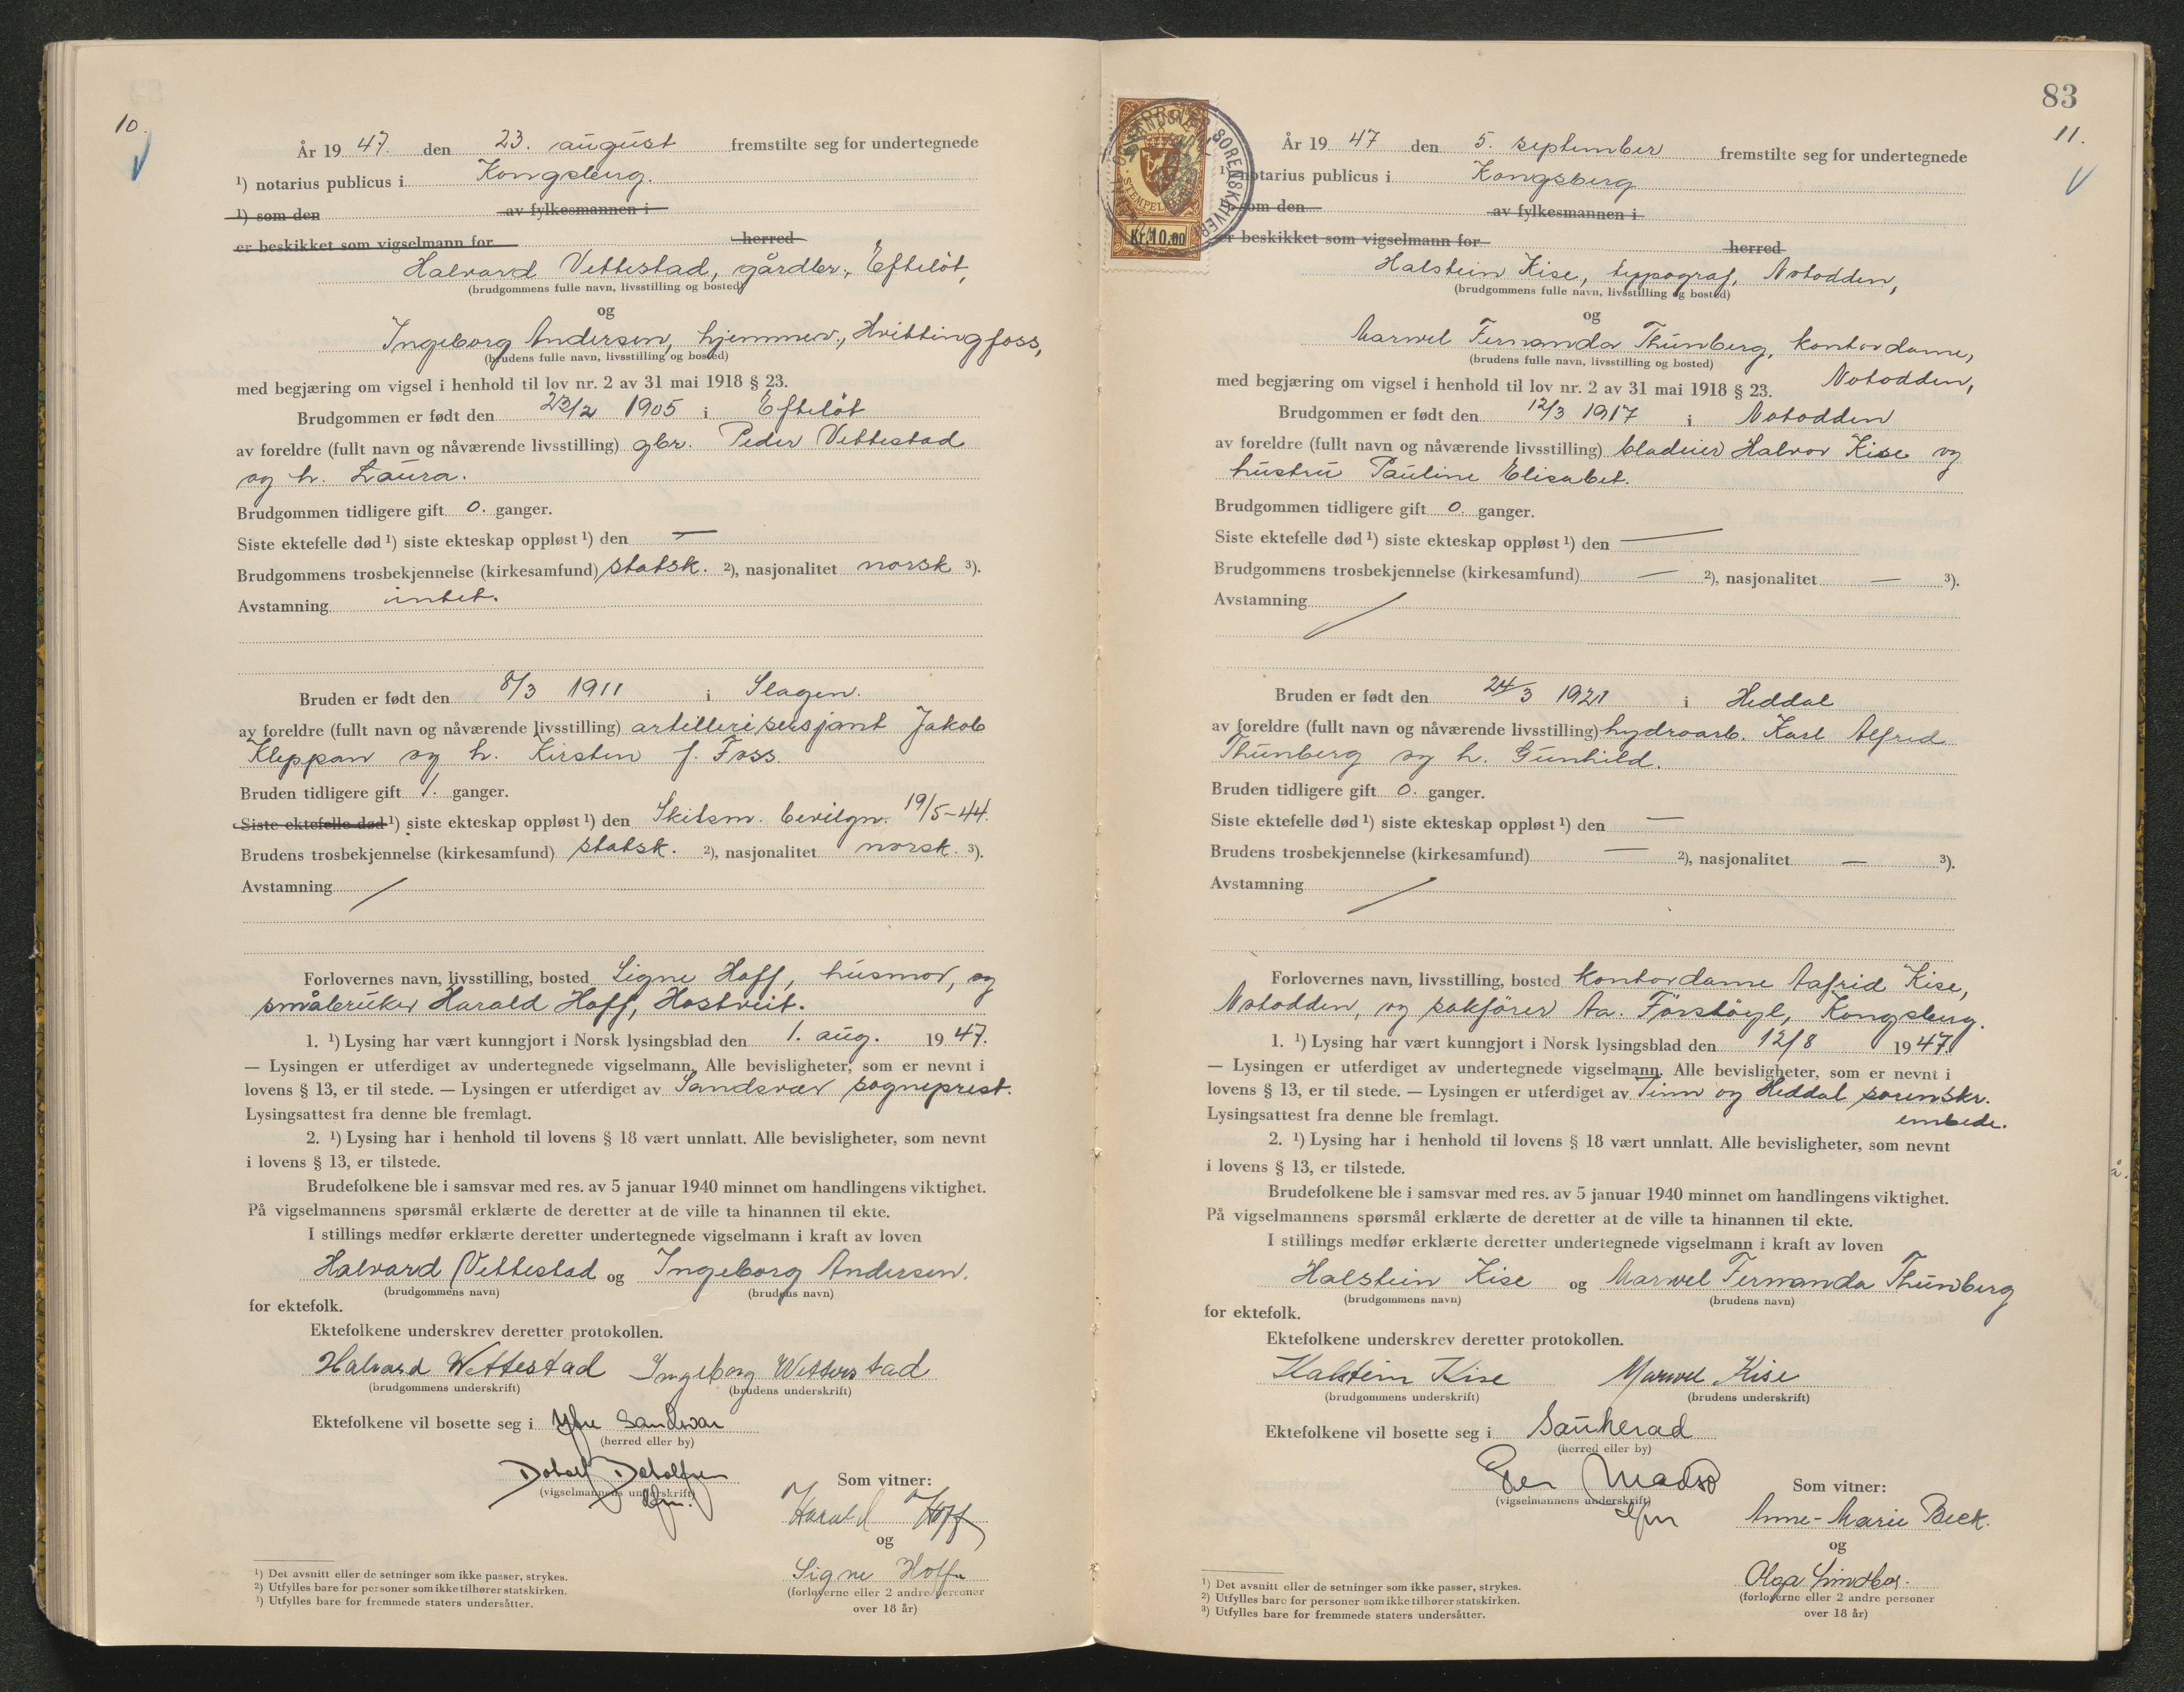 10.
År 1947. den 23. august fremstilte seg for undertegnede
¹) notarius publicus i Kongsberg.
¹) som den av fylkesmannen i
er beskikket som vigselmann for herred
Halvard Vettestad, gårdbr., Efteløt,
(brudgommens fulle navn, livsstilling og bosted)
og
Ingeborg Andersen, hjemmev., Hvittingfoss,
(brudens fulle navn, livsstilling og bosted)
med begjæring om vigsel i henhold til lov nr. 2 av 31 mai 1918 § 23.
Brudgommen er født den 23/2 1905 i Efteløt
av foreldre (fullt navn og nåværende livsstilling) gbr. Peder Vettestad
og h. Laura.
Brudgommen tidligere gift 0. ganger.
Siste ektefelle død ¹) siste ekteskap oppløst ¹) den —
Brudgommens trosbekjennelse (kirkesamfund) statsk. ²), nasjonalitet norsk ³).
Avstamning intet.
Bruden er født den 8/3 1911 i Slagen.
av foreldre (fullt navn og nåværende livsstilling) artillerisersjant Jakob
Kleppan og h. Kirsten f. Foss
Bruden tidligere gift 1. ganger.
Siste ektefelle død ¹) siste ekteskap oppløst ¹) den Skilsm. bevilgn. 19/5-44.
Brudens trosbekjennelse (kirkesamfund) statsk. ²), nasjonalitet norsk. ³).
Avstamning /
Forlovernes navn, livsstilling, bosted Signe Hoff, husmor, og
småbruker Harald Hoff, Hostveit.
1. ¹) Lysing har vært kunngjort i Norsk lysingsblad den 1. aug. 1947.
— Lysingen er utferdiget av undertegnede vigselmann. Alle bevisligheter, som er nevnt i
lovens § 13, er til stede. — Lysingen er utferdiget av Sandsvær sogneprest.
Lysingsattest fra denne ble fremlagt.
2. ¹) Lysing har i henhold til lovens § 18 vært unnlatt. Alle bevisligheter, som nevnt
i lovens § 13, er tilstede.
Brudefolkene ble i samsvar med res. av 5 januar 1940 minnet om handlingens viktighet.
På vigselmannens spørsmål erklærte de deretter at de ville ta hinannen til ekte.
I stillings medfør erklærte deretter undertegnede vigselmann i kraft av loven
Halvard Vettestad og Ingeborg Andersen.
(brudgommens navn) (brudens navn)
for ektefolk.
Ektefolkene underskrev deretter protokollen.
Halvard Wettestad Ingeborg Wettestad
(brudgommens underskrift) (brudens underskrift)
Ektefolkene vil bosette seg i Ytre Sandsvær
(herred eller by)
(vigselmannens underskrift)
Som vitner:
Harald Hoff
og
Signe Hoff
(forloverne eller 2 andre personer
over 18 år)
¹) Det avsnitt eller de setninger som ikke passer, strykes.
²) Utfylles bare for personer som ikke tilhører statskirken.
³) Utfylles bare for fremmede staters undersåtter.
83
11.
SORENSKRIVER
STEMPEL
Kr. 10.00
År 1947 den 5. september fremstilte seg for undertegnede
¹) notarius publicus i Kongsberg
som den av fylkesmannen i
er beskikket som vigselmann for herred
Halstein Kise, typograf, Notodden,
(brudgommens fulle navn, livsstilling og bosted)
og
Marwel Fernanda Thunberg, kontordame,
(brudens fulle navn, livsstilling og bosted)
med begjæring om vigsel i henhold til lov nr. 2 av 31 mai 1918 § 23. Notodden,
Brudgommen er født den 12/3 1917 i Notodden
av foreldre (fullt navn og nåværende livsstilling) bladeier Halvor Kise og
hustru Pauline Elisabet.
Brudgommen tidligere gift 0. ganger.
Siste ektefelle død ¹) siste ekteskap oppløst ¹) den —
Brudgommens trosbekjennelse (kirkesamfund) — ²), nasjonalitet — ³).
Avstamning /
Bruden er født den 24/3 1921 i Heddal
av foreldre (fullt navn og nåværende livsstilling) hydroarb. Karl Alfred
Thunberg og h. Gunhild.
Bruden tidligere gift 0. ganger.
Siste ektefelle død ¹) siste ekteskap oppløst ¹) den —
Brudens trosbekjennelse (kirkesamfund) — ²), nasjonalitet — ³).
Avstamning /
Forlovernes navn, livsstilling, bosted kontordame Aafrid Kise,
Notodden, og sakfører Aa. Førstøyl, Kongsberg.
1. ¹) Lysing har vært kunngjort i Norsk lysingsblad den 12/8 1947.
— Lysingen er utferdiget av undertegnede vigselmann. Alle bevisligheter, som er nevnt i
lovens § 13, er til stede. — Lysingen er utferdiget av Tinn og Heddal sorenskr.
Lysingsattest fra denne ble fremlagt. embede.
2. ¹) Lysing har i henhold til lovens § 18 vært unnlatt. Alle bevisligheter, som nevnt
i lovens § 13, er tilstede.
Brudefolkene ble i samsvar med res. av 5 januar 1940 minnet om handlingens viktighet.
På vigselmannens spørsmål erklærte de deretter at de ville ta hinannen til ekte.
I stillings medfør erklærte deretter undertegnede vigselmann i kraft av loven
Halstein Kise og Marwel Fernanda Thunberg
(brudgommens navn) (brudens navn)
for ektefolk.
Ektefolkene underskrev deretter protokollen.
Halstein Kise Marwel Kise
(brudgommens underskrift) (brudens underskrift)
Ektefolkene vil bosette seg i Sauherad
(herred eller by)
(vigselmannens underskrift)
Som vitner:
Anne-Marie Beck.
og
Olga
(forloverne eller 2 andre personer
over 18 år)
¹) Det avsnitt eller de setninger som ikke passer, strykes.
²) Utfylles bare for personer som ikke tilhører statskirken.
³) Utfylles bare for fremmede staters undersåtter.